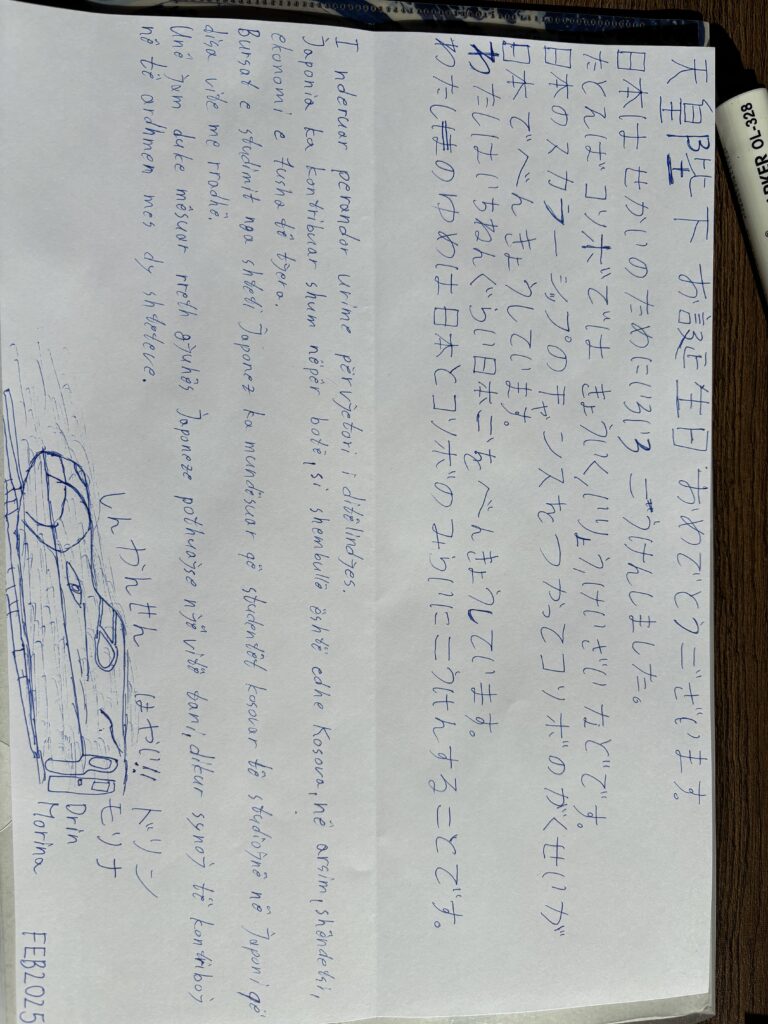 天皇陛下 お誕生日 おめでとうございます。
日本は せかいのためにいろいろ こうけんしました。
たとえば コソボでは きょういく,いりょう,けいざい などです。
日本のスカラーシップの チャンスを つかって コソボの がくせいが
日本で べんきょうしています。
わたしは いちねんぐらい 日本ごを べんきょうしています。
わたしのゆめは 日本と コソボの みらいに こうけんすることです。
I nderuar perandor urime përvjetori i ditëlindjes.
Japonia ka kontribuar shum nëpër botë, si shembullë është edhe Kosova, në arsim, shëndetsi,
ekonomi e tusha të tjera.
Bursat e studimit nga shteti Japonez ka mundësuar që studentët kosovar të studiojnë në Japoni që
disa vite me rradhë.
Unë jam duke mësuar rreth gjuhës Japoneze pothuajse një vitë tani, dikur synoj të kontriboj
në të ardhmen mes dy shteteve.
しんかんせん はやい!! ドリン
モリナ
Drin
Morina
FEB2025
MARKER OL-328